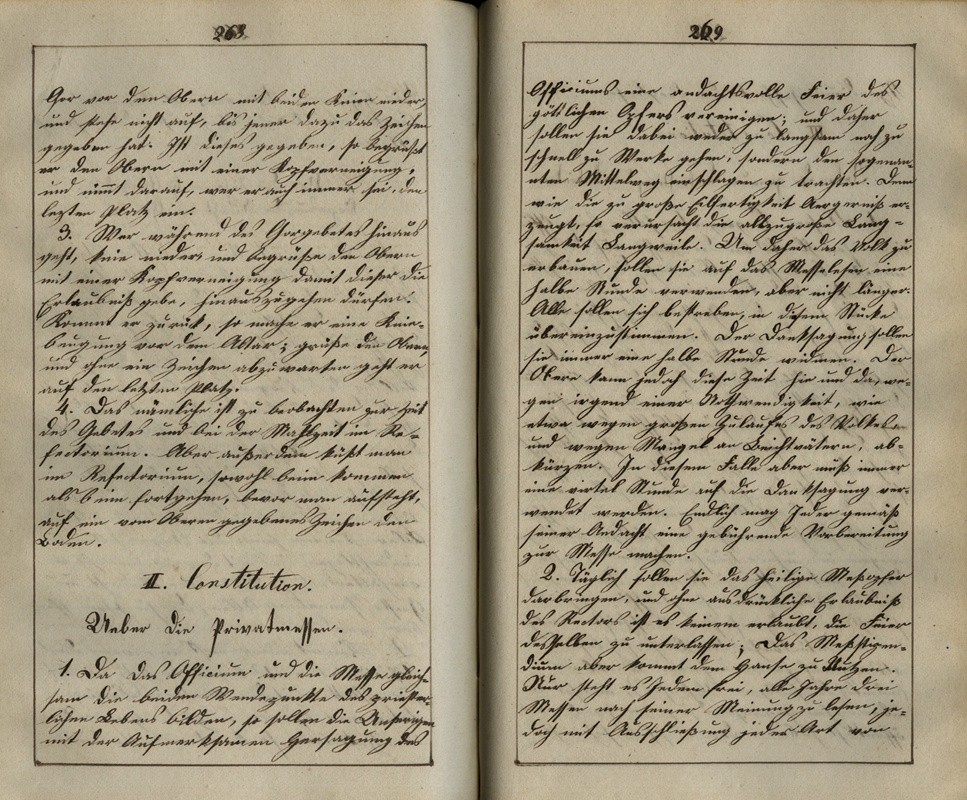 263
Chor vor dem Obern mit beiden Knien nieder,
und stehe nicht auf, bis jener dazu das Zeichen
gegeben hat. Ist dieses gegeben, so begrüßt
er den Obern mit einer Kopfverneigung,
und nimmt darauf, wer er auch immer sei, den
lezten Platz ein.
3. Wer während des Chorgebetes hinaus
geht, knie nieder und begrüße den Obern
mit einer Kopfverneigung damit dieser die
Erlaubniß gebe, hinauszugehen dürfen.
Kommt er zurük, so mache er eine Knie-
beugung vor dem Altar; grüße den Obern,
und ohne ein Zeichen abzuwarten geht er
auf den letzten Platz.
4. Das nämliche ist zu beobachten zur Zeit
des Gebetes und bei der Mahlzeit im Re-
fectorium. Aber außerdem küßt man
im Refectorium, sowohl beim kommen
als beim fortgehen, bevor man aufsteht,
auf ein vom Oberen gegebenes Zeichen den
Boden.
II. Constitution.
Ueber die Privatmessen.
1. Da das Officium und die Messe gleich-
sam die beiden Wendepunkte des priester-
lichen Lebens bilden, so sollen die Unsrigen
mit der aufmerksamen Hersagung des
269
Officiums eine andachtsvolle Feier des
göttlichen Opfers vereinigen; und daher
sollen sie dabei weder zu langsam noch zu
schnell zu Werke gehen, sondern den sogenan-
nten Mittelweg einschlagen zu trachten. Denn
wie die zu große Eilfertigkeit Aergerniß er-
zeugt, so verursacht die allzugroße Lang-
samkeit Langweile. Um daher das Volk zu
erbauen, sollen sie auf das Messelesen eine
halbe Stunde verwenden, aber nicht länger.
Alle sollen sich bestreben, in diesem Stüke
übereinzustimmen. Der Danksagung sollen
sie immer eine halbe Stunde widmen. Der
Obere kann jedoch diese Zeit hie und da, we-
gen irgend einer Nothwendigkeit, wie
etwa wegen großen Zulaufes des Volkes
und wegen Mangel an Beichtvätern, ab-
kürzen. In diesem Falle aber muß immer
eine viertel Stunde auf die Danksagung ver-
wendet werden. Endlich mag Jeder gemäß
seiner Andacht eine gebührende Vorbereitung
zur Messe machen.
2. Täglich sollen sie das heilige Meßopfer
darbringen, und ohne ausdrückliche Erlaubniß
des Rectors ist es keinem erlaubt, die Feier
desselben zu unterlassen; Das Meßstipen-
dium aber kommt dem Hause zu Nutzen.
Nur steht es Jedem frei, alle Jahre drei
Messen nach seiner Meinung zu lesen, je-
doch mit Ausschließung jeder Art von